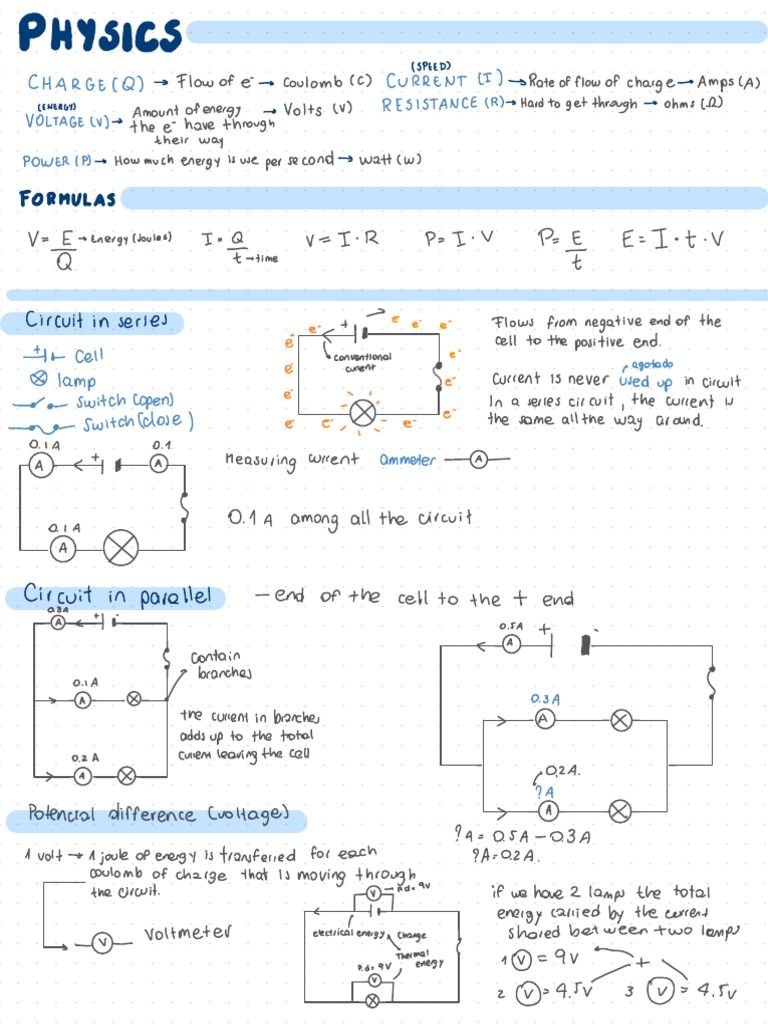 PHYSICS
(SPEED)
CHARGE (Q) → Flow of e⁻ → Coulomb (C) CURRENT (I) → Rate of flow of charge → Amps (A)
(ENERGY)
VOLTAGE (V) → Amount of energy → Volts (V) RESISTANCE (R) → Hard to get through → ohms (Ω)
the e⁻ have through
their way
POWER (P) → How much energy is we per second → watt (w)
FORMULAS
V = E/Q → Energy (Joules) I = Q/t → time V = I · R P = I · V P = E/t E = I · t · V
Circuit in series
+ Cell
lamp
switch (open)
switch (close)
e⁻ e⁻ + - e⁻ e⁻ e⁻
e⁻ e⁻
e⁻ e⁻
e⁻ e⁻ e⁻ e⁻
conventional
current
Flows from negative end of the
cell to the positive end.
agotado
Current is never used up in circuit
In a series circuit, the current is
the same all the way around.
0.1 A 0.1
A + A
0.1 A
A
Measuring current ammeter A
0.1 A among all the circuit
Circuit in parallel — end of the cell to the + end
0.3A
A + -
0.1 A
A
0.2 A
A
Contain
branches
the current in branches
adds up to the total
current leaving the cell
0.5A + -
A
0.3 A
A
0.2A.
?A
A
?A = 0.5A – 0.3A
?A = 0.2A.
Potencial difference (voltages)
1 volt → 1 joule of energy is transferred for each
coulomb of charge that is moving through
the circuit.
V voltmeter
V P.d = 9V
electrical energy Charge
Thermal
energy
P.d = 9V
V
if we have 2 lamps the total
energy carried by the current
shared between two lamps
1 V = 9V
+
2 V = 4.5V 3 V = 4.5V